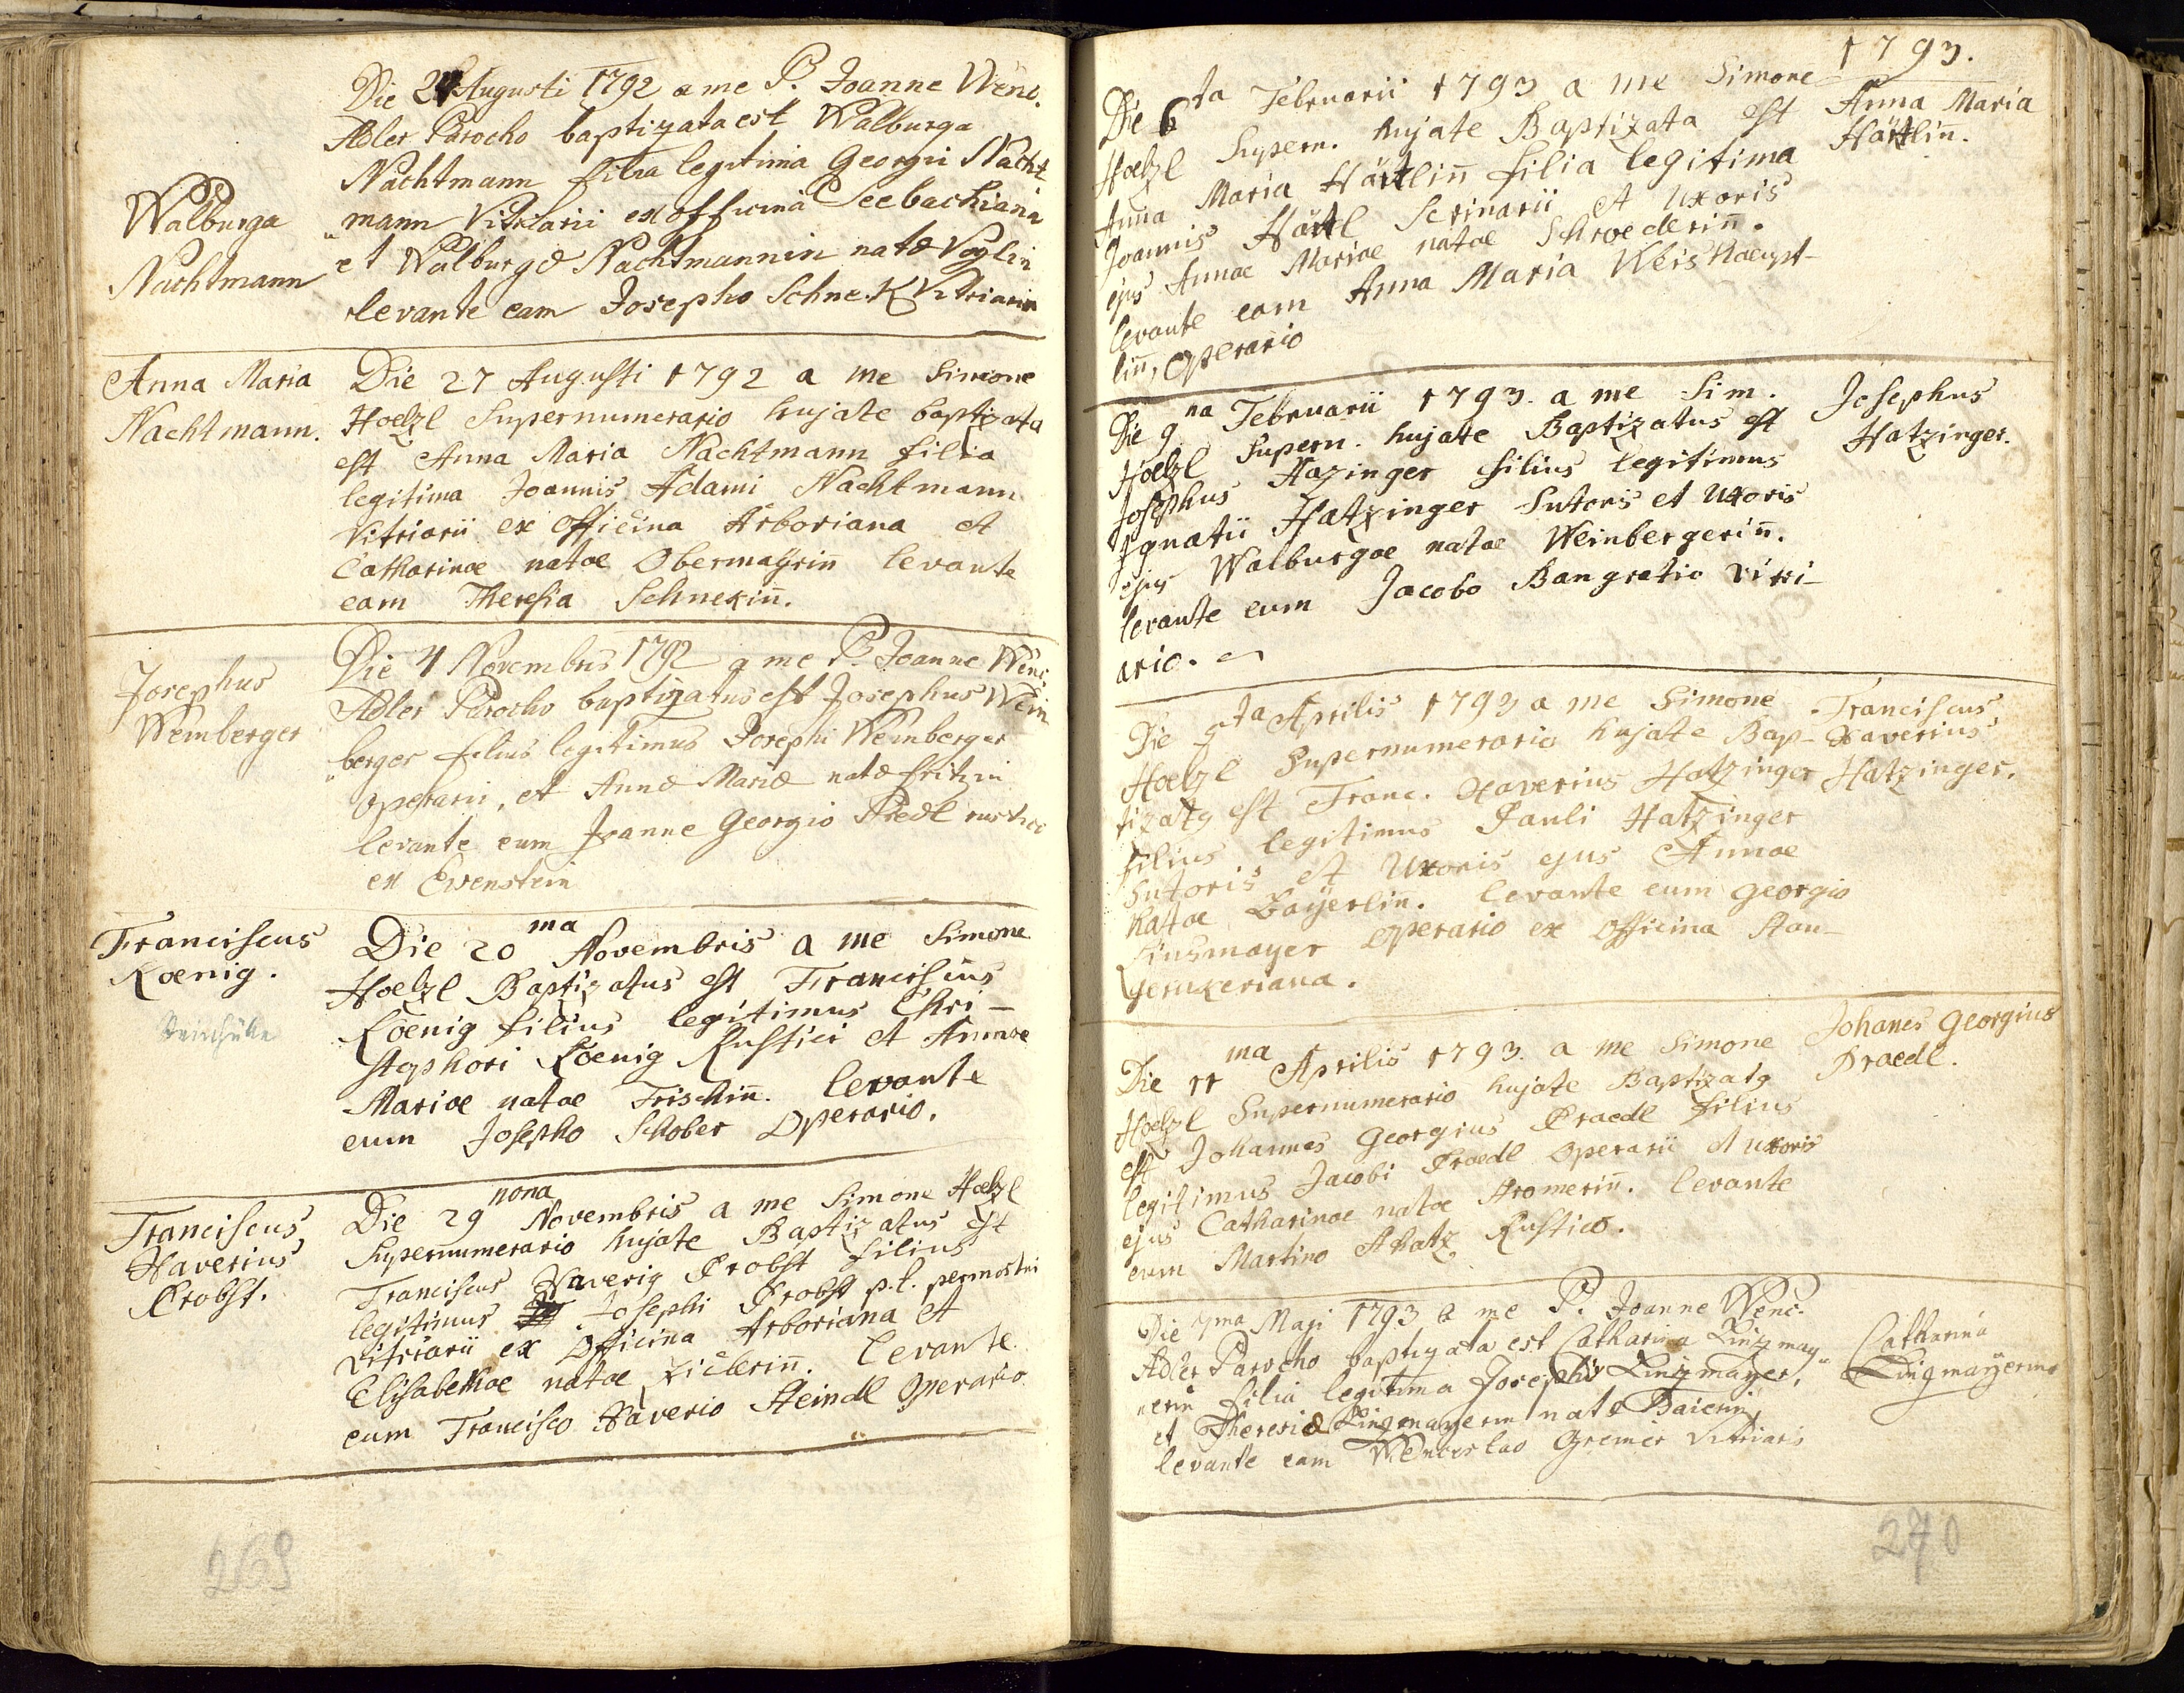 Walburga
Nachtmann
Die 24 Augusti 1792 a me P. Joanne Wenc.
Adler Parocho baptizata est Walburga
Nachtmann filia legitima Georgii Nacht
mann Vitriarii ex officina Seebachiana
et Walburgæ Nachtmannin natæ Voglin
levante eam Josepho Schneck Vitriario
Anna Maria
Nachtmann.
Die 27 Augusti 1792 a me Simone
Hoelzl Supernumerario hujate baptizata
est Anna Maria Nachtmann filia
legitima Joannis Adami Nachtmann
Vitriarii ex Officina Arboriana et
Catharinae natae Obermayrin̄ levante
eam Theresia Schnekin̄.
Josephus
Weinberger
Die 4 Novembris 1792 a me P. Joanne Wenc.
Adler Parocho baptizatus est Josephus Wein
berger filius legitimus Josephi Weinberger
operarii, et Annæ Mariæ natæ fritzin
levante eum Joanne Georgio Predl rustico
ex Eisenstein
Franciscus
Koenig.
Die 20ma Novembris a me Simone
Hoelzl Baptizatus est Franciscus
Koenig filius legitimus Chri-
stophori Koenig Rustici et Annae
Mariae natae Trischin̄. levante
eum Josepho Schober Operario.
Franciscus
Xaverius
Probst.
Die 29 nona Novembris a me Simone Hoelzl
Supernumerario hujate Baptizatus est
Franciscus Xaverig Probst filius
legitimus Josephi Probst p.t. permostni
vitriarii ex Officina Arboriana et
Elisabethae natae Ziclerin̄. levante
eum Francisco Xaverio Steindl Operario
269
1793.
Die 6ta Februarii 1793 a me Simone
Hoelzl Supern. hujate Baptizata est
Anna Maria Härtlin̄ filia legitima
Joannis Härtl Scrinarii et Uxoris
ejus Annae Mariae natae Schroederin̄.
levante eam Anna Maria Weishaeupt-
lin̄, Operario
Anna Maria
Härtlin̄.
Die 9na Februarii 1793. a me Sim.
Hoelzl Supern. hujate Baptizatus est
Josephus Hazinger filius legitimus
Ignatii Hatzinger Sutoris et Uxoris
ejus Walburgae natae Weinbergerin̄.
levante eum Jacobo Bangratio vitri-
ario.
Josephus
Hatzinger.
Die 5ta Aprilis 1793 a me Simone
Hoelzl Supernumerario hujate Bap-
tizatg est Franc. Xaverius Hatzinger
filius legitimus Pauli Hatzinger
Sutoris et Uxoris ejus Annae
Natae Bayerlin̄. levante eum Georgio
Linsmayer Operario ex Officina Han-
gerukeriana.
Franciscus
Xaverius
Hatzinger.
Die 11ma Aprilis 1793. a me Simone
Hoelzl Supernumerario hujate Baptizatg
est Johannes Georgius Praedl filius
legitimus Jacobi Praedl Operarii et uxoris
ejus Catharinae natae Kromerin̄. levante
eum Martino Schatz Rustico.
Johanes Georgius
Praedl.
Die 7ma Maji 1793 a me P. Joanne Wenc.
Adler Parocho baptizata est Catharina Linzmay
erin filia legitima Josephi Linzmayer,
et Theresiæ Linzmayerin natæ Baierin,
levante eam Wenceslao Gremer Vitriario
Catharina
Linzmayerinn
270